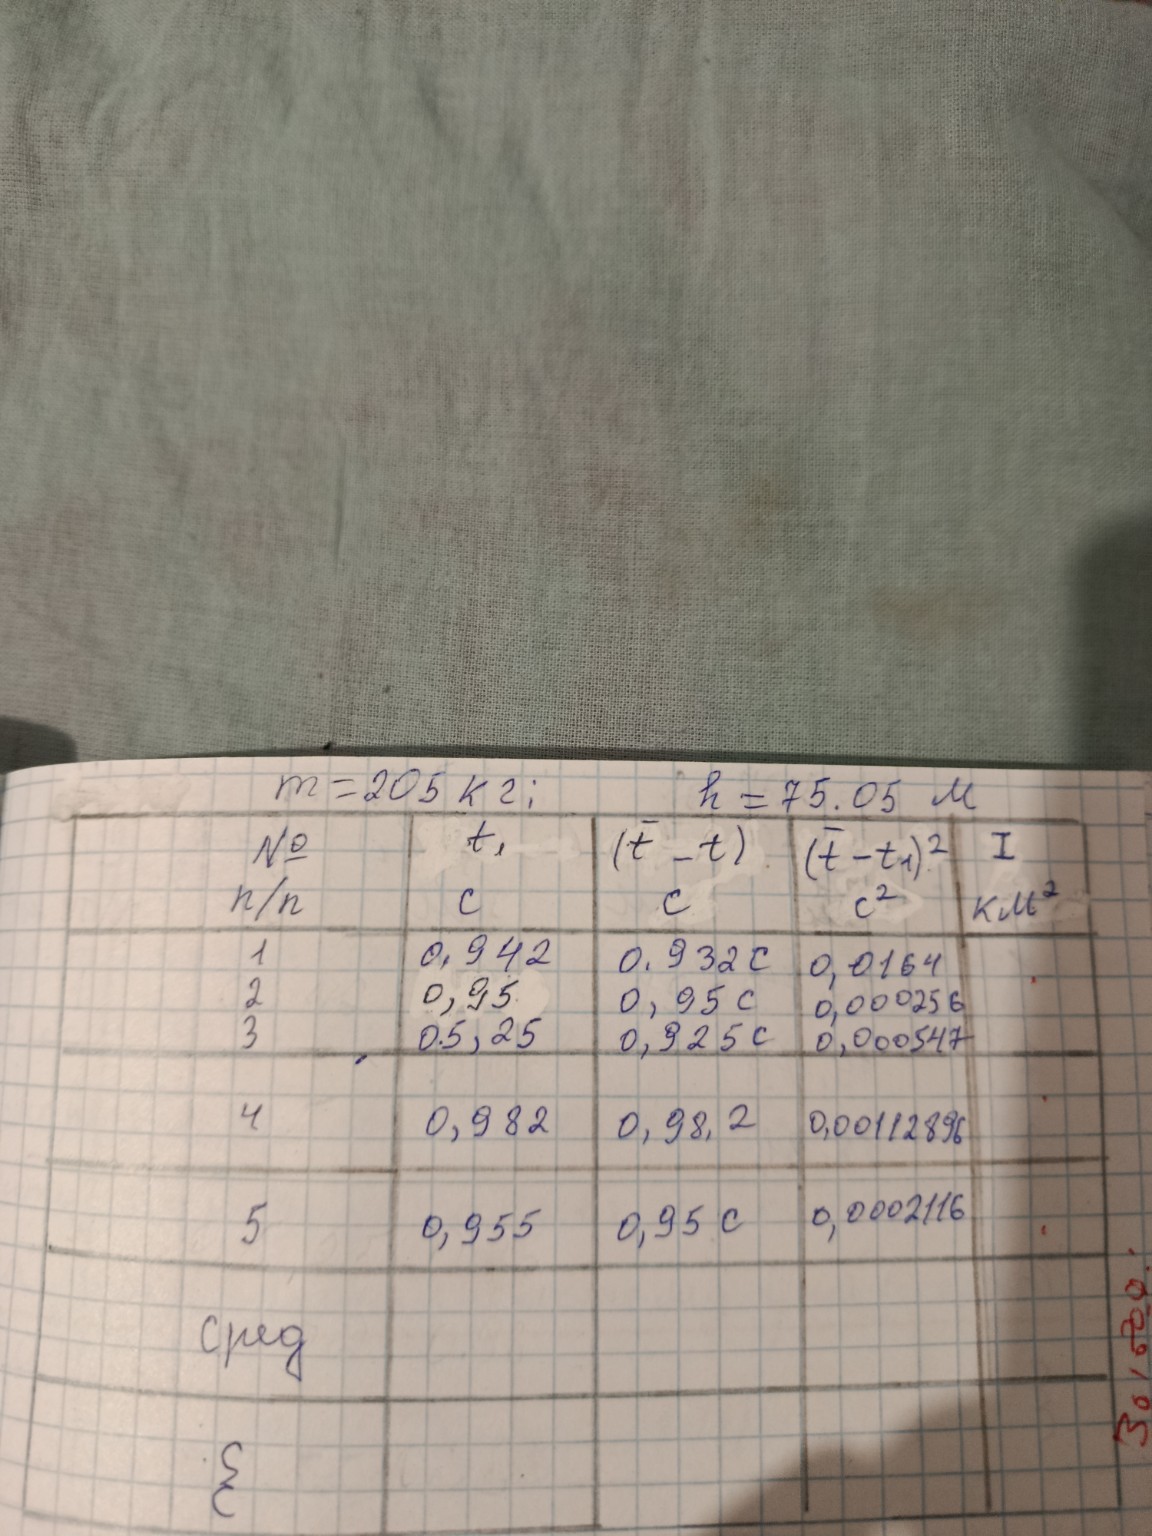 m=205 кг; h=75.05 м
№ t₁ (t̄-t) (t̄-t₁)² I
п/п с с с² км²
1 0,942 0.932с 0,0164
2 0,95 0,95с 0,000256
3 0.5,25 0,925с 0,000547
4 0,982 0,98,2 0,00112896
5 0,955 0,95с 0,0002116
сред
Σ